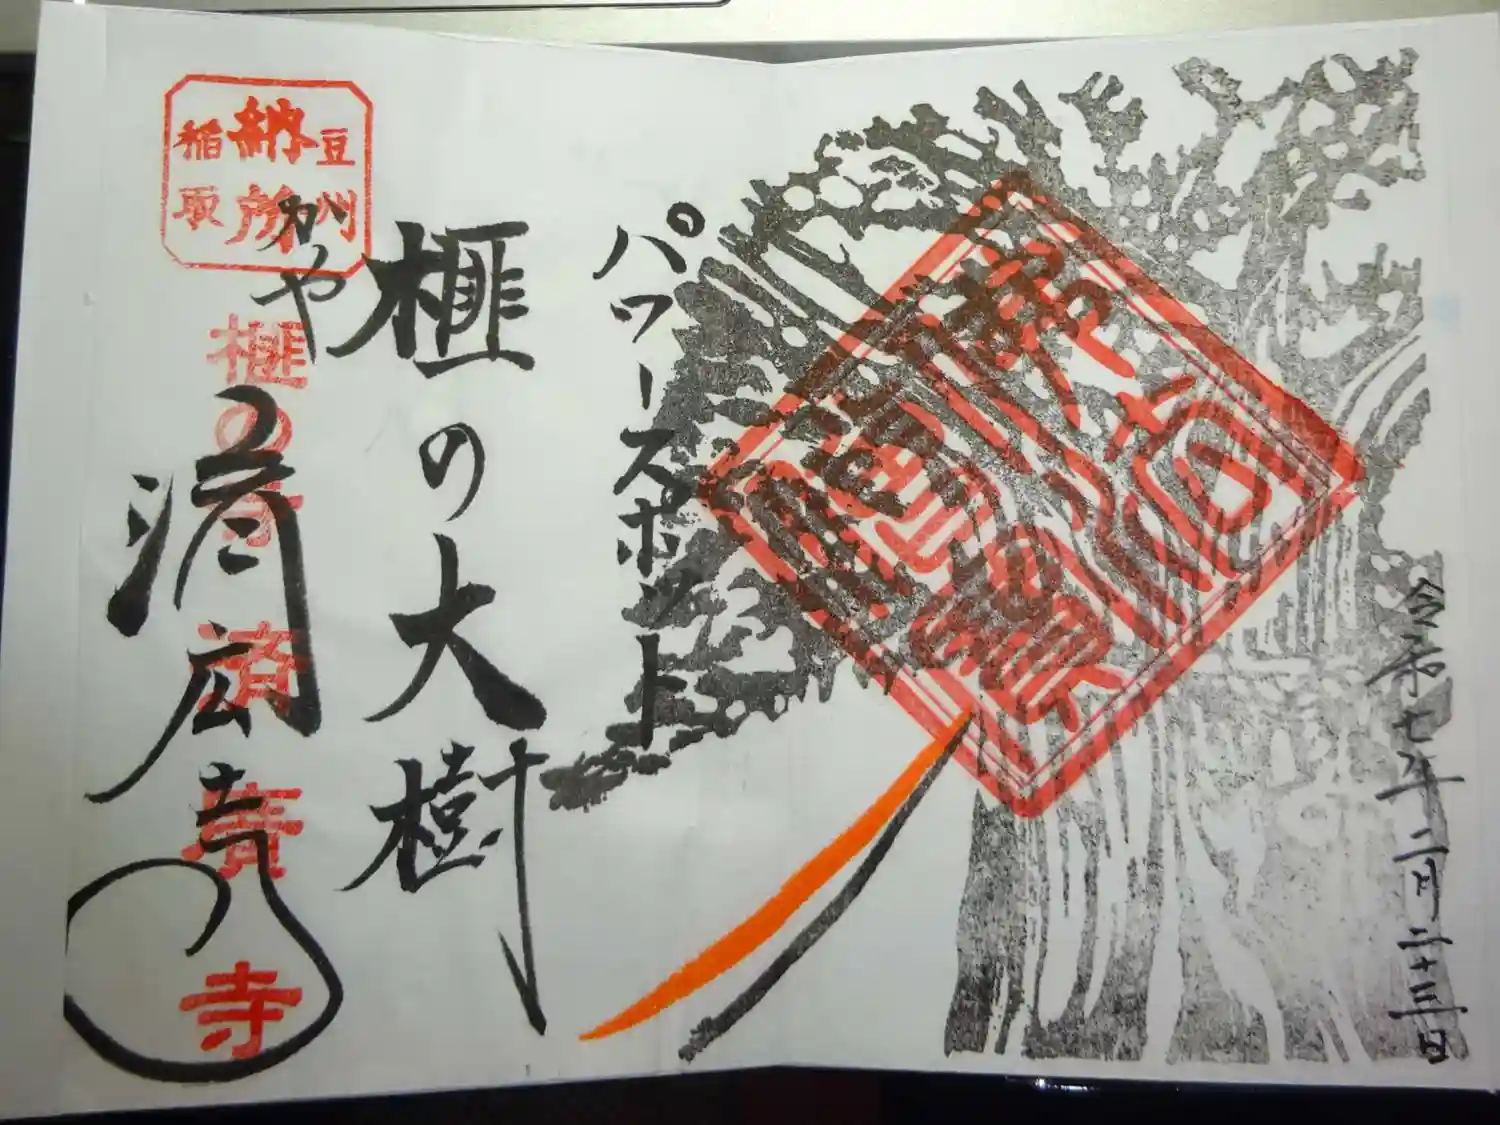 令和七年二月二十三日
パワースポット
榧の大樹
かや
済広寺
豆州
納所
稲取
榧の寺 済廣寺